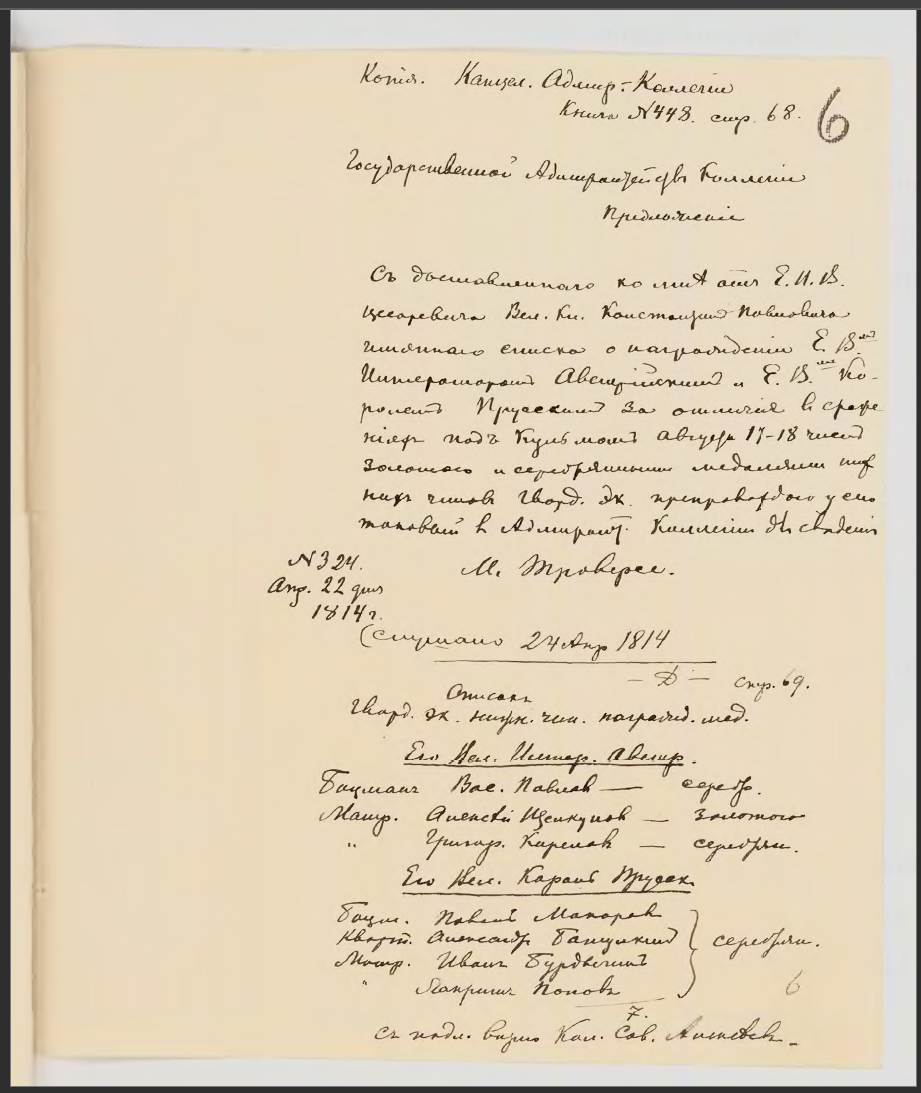 Копія. Канцел. Адмир-Коллегіи
Книга №448. стр. 68.
6
Государственной Адмиралтейств Коллегіи
Предложеніе
Съ доставленнаго ко мнѣ отъ Е. И. В.
цесаревича Вел. Кн. Константина Павловича
имяннаго списка о награжденіи Е. В.
Императоромъ Австрійскимъ и Е. В. Ко-
ролемъ Прусскимъ за отличія в сраже
ніяхъ подъ Кульмомъ августа 17-18 чиселъ
золотою и серебряными медалями ниж
нихъ чиновъ Гвард. Эк. препровождаю у сего
таковый в Адмиралт. Коллегію для свѣденія
М. Траверсе.
№324.
Апр. 22 дня
1814 г.
(Слушано 24 Апр 1814
стр. 69.
Списокъ
Гвард. эк. нижн. чин. награжд. мед.
Его Вел. Импер. Австр.
Боцманъ Вас. Павлов — серебр.
Матр. Алексѣй — золотою
" Григор. Кирилов — серебрян.
Его Вел. Королемъ Прусск.
Боцм. Макаров
Кварт. Александр
Матр. Иванъ
серебрян.
" Поповъ
6
7.
съ подл. вѣрно Кол. Сов.